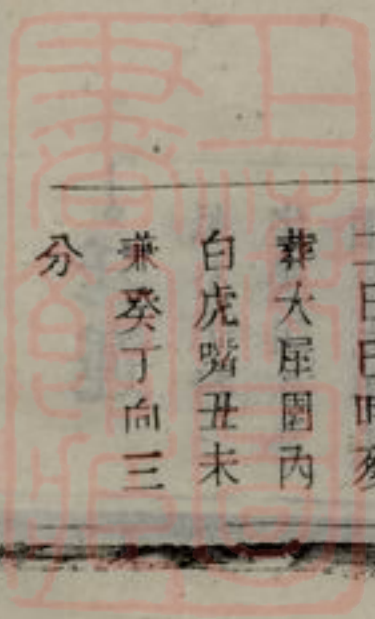 二日巳時殁
葬大屋園內
白虎嘴丑未
兼癸丁向三
分